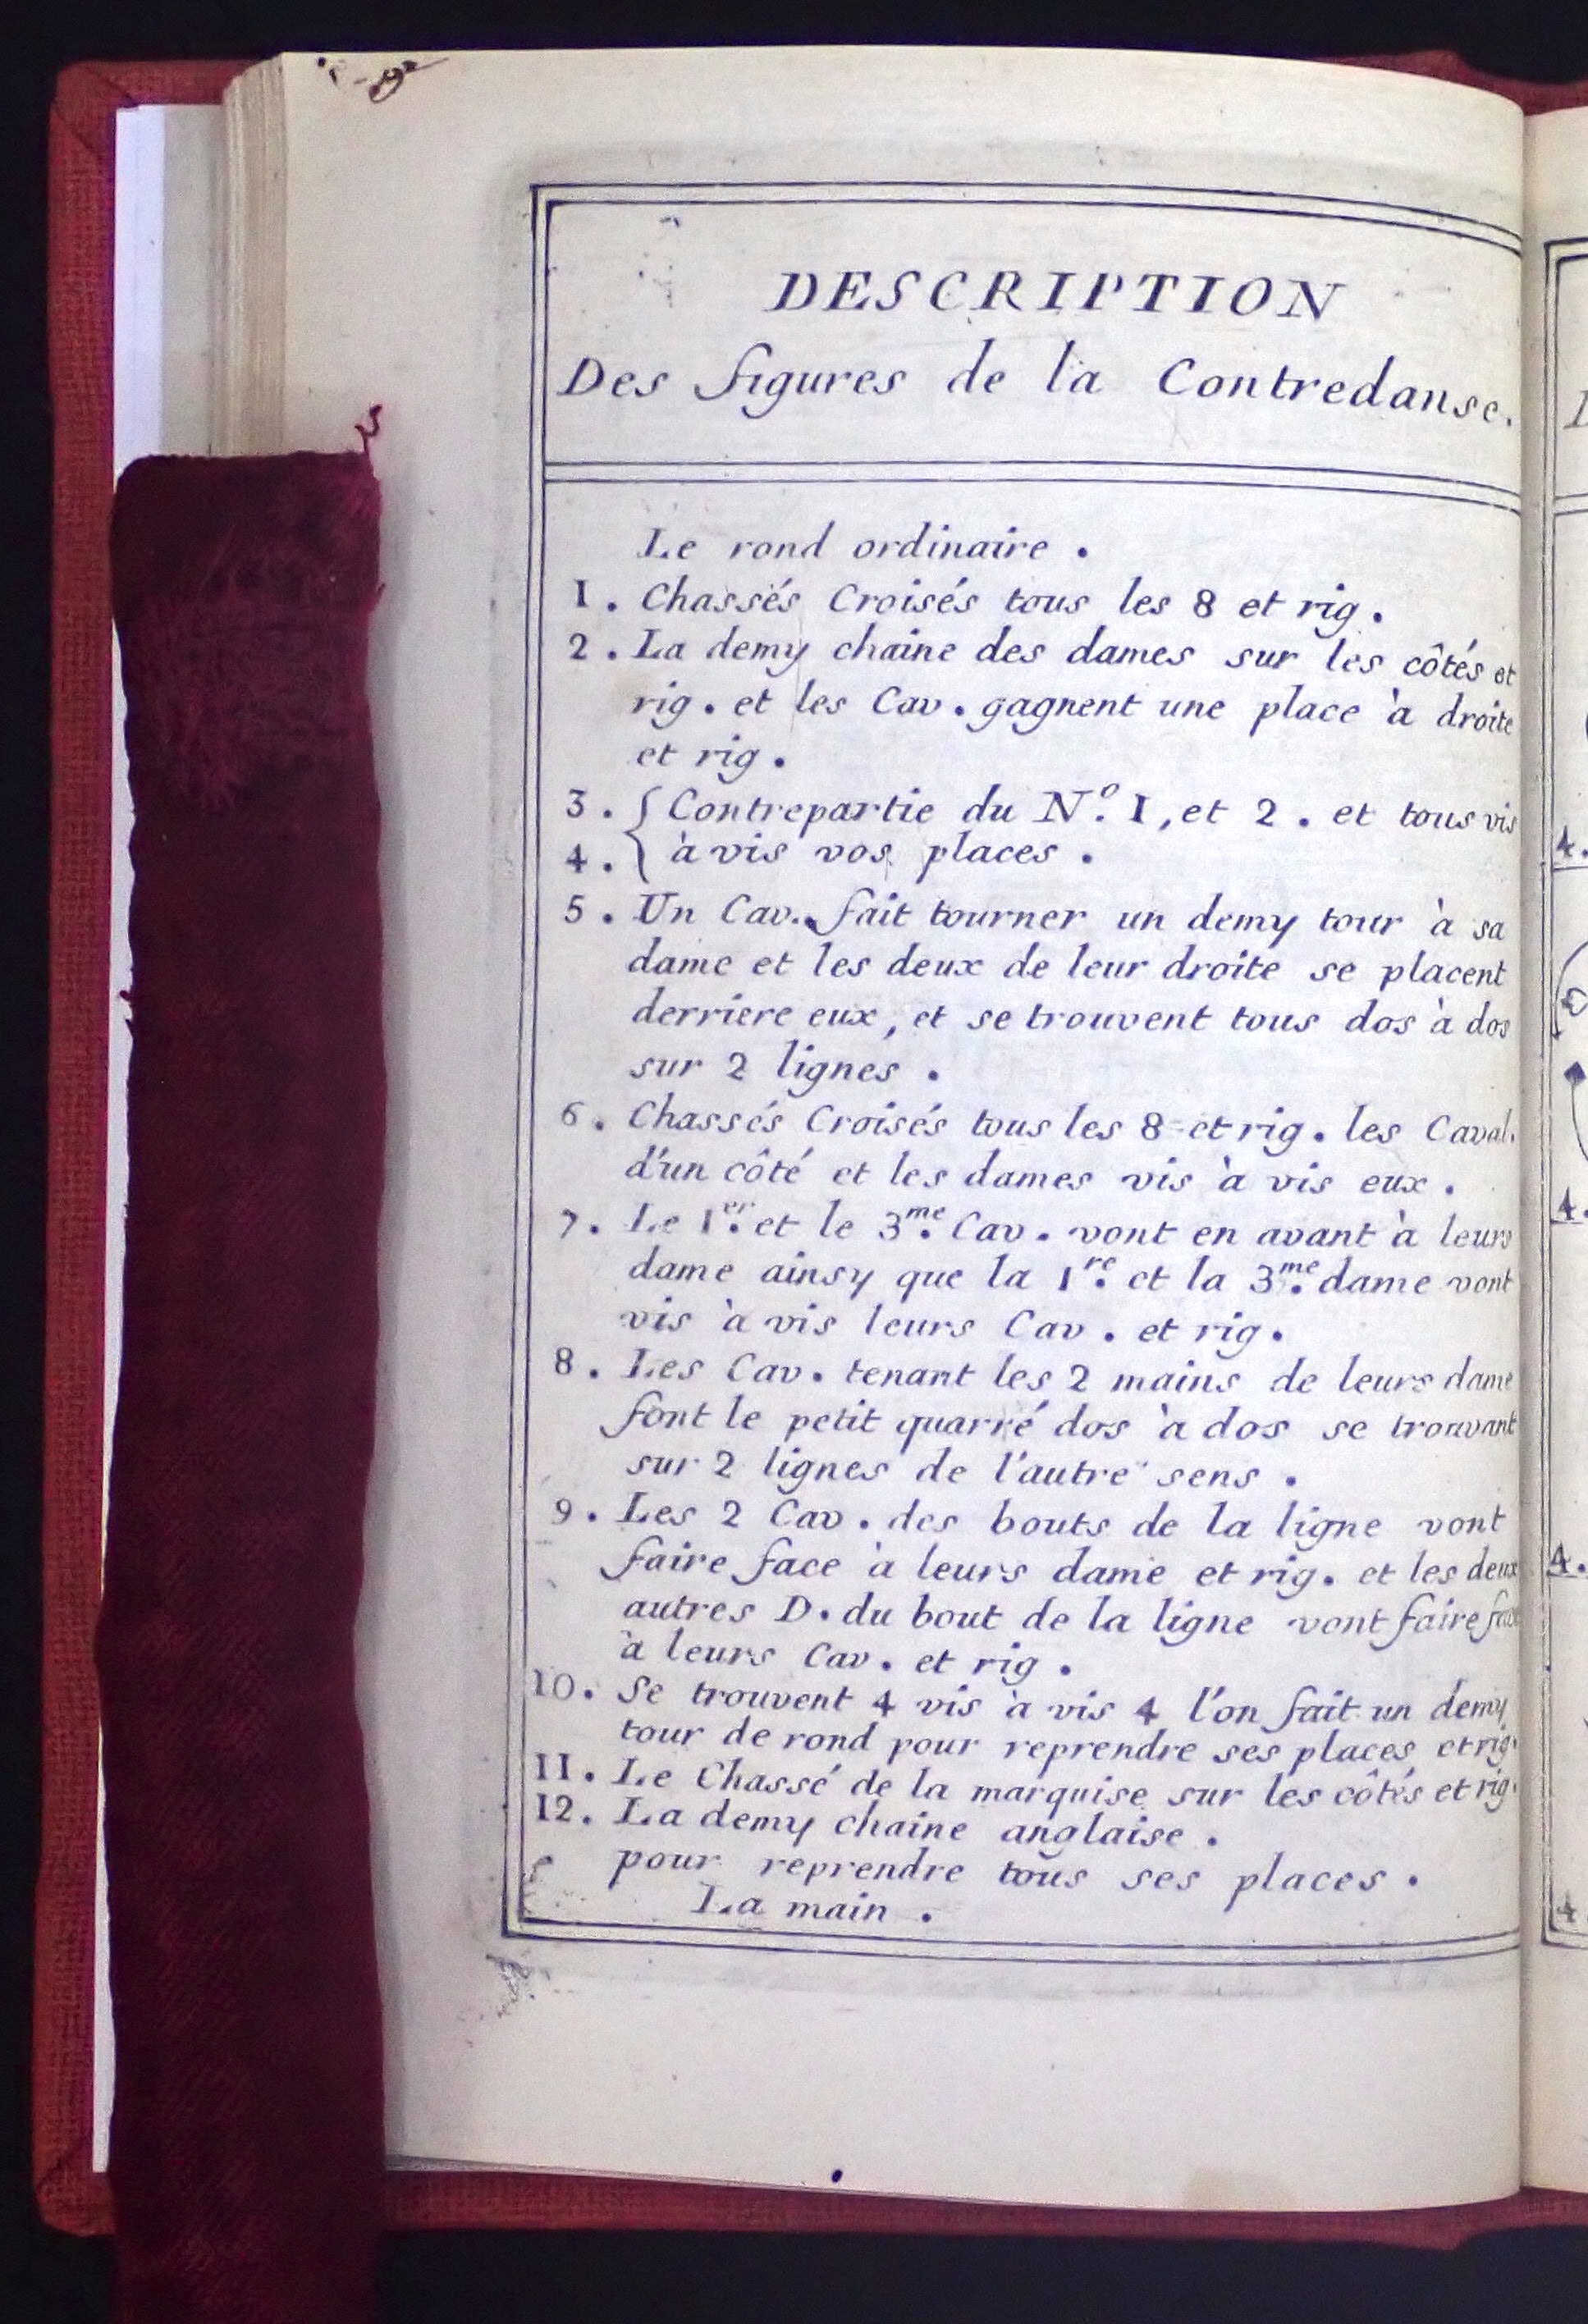 DESCRIPTION
Des figures de la Contredanse.
Le rond ordinaire .
1 . Chassés Croisés tous les 8 et rig .
2 . La demy chaine des dames sur les côtés et
rig . et les Cav . gagnent une place à droite
et rig .
3 . { Contrepartie du N.º 1 , et 2 . et tous vis
4 . { à vis vos places .
5 . Un Cav. fait tourner un demy tour à sa
dame et les deux de leur droite se placent
derriere eux , et se trouvent tous dos à dos
sur 2 lignes .
6 . Chassés Croisés tous les 8 et rig . les Caval.
d'un côté et les dames vis à vis eux .
7 . Le 1.er et le 3.me Cav . vont en avant à leurs
dame ainsy que la 1.re et la 3.me dame vont
vis à vis leurs Cav . et rig .
8 . Les Cav . tenant les 2 mains de leurs dame
font le petit quarré dos à dos se trouvant
sur 2 lignes de l'autre sens .
9 . Les 2 Cav . des bouts de la ligne vont
faire face à leurs dame et rig . et les deux
autres D . du bout de la ligne vont faire face
à leurs Cav . et rig .
10 . Se trouvent 4 vis à vis 4 l'on fait un demy
tour de rond pour reprendre ses places et rig.
11 . Le Chassé de la marquise sur les côtés et rig.
12 . La demy chaine anglaise .
pour reprendre tous ses places .
La main .
4.
4.
4.
4.